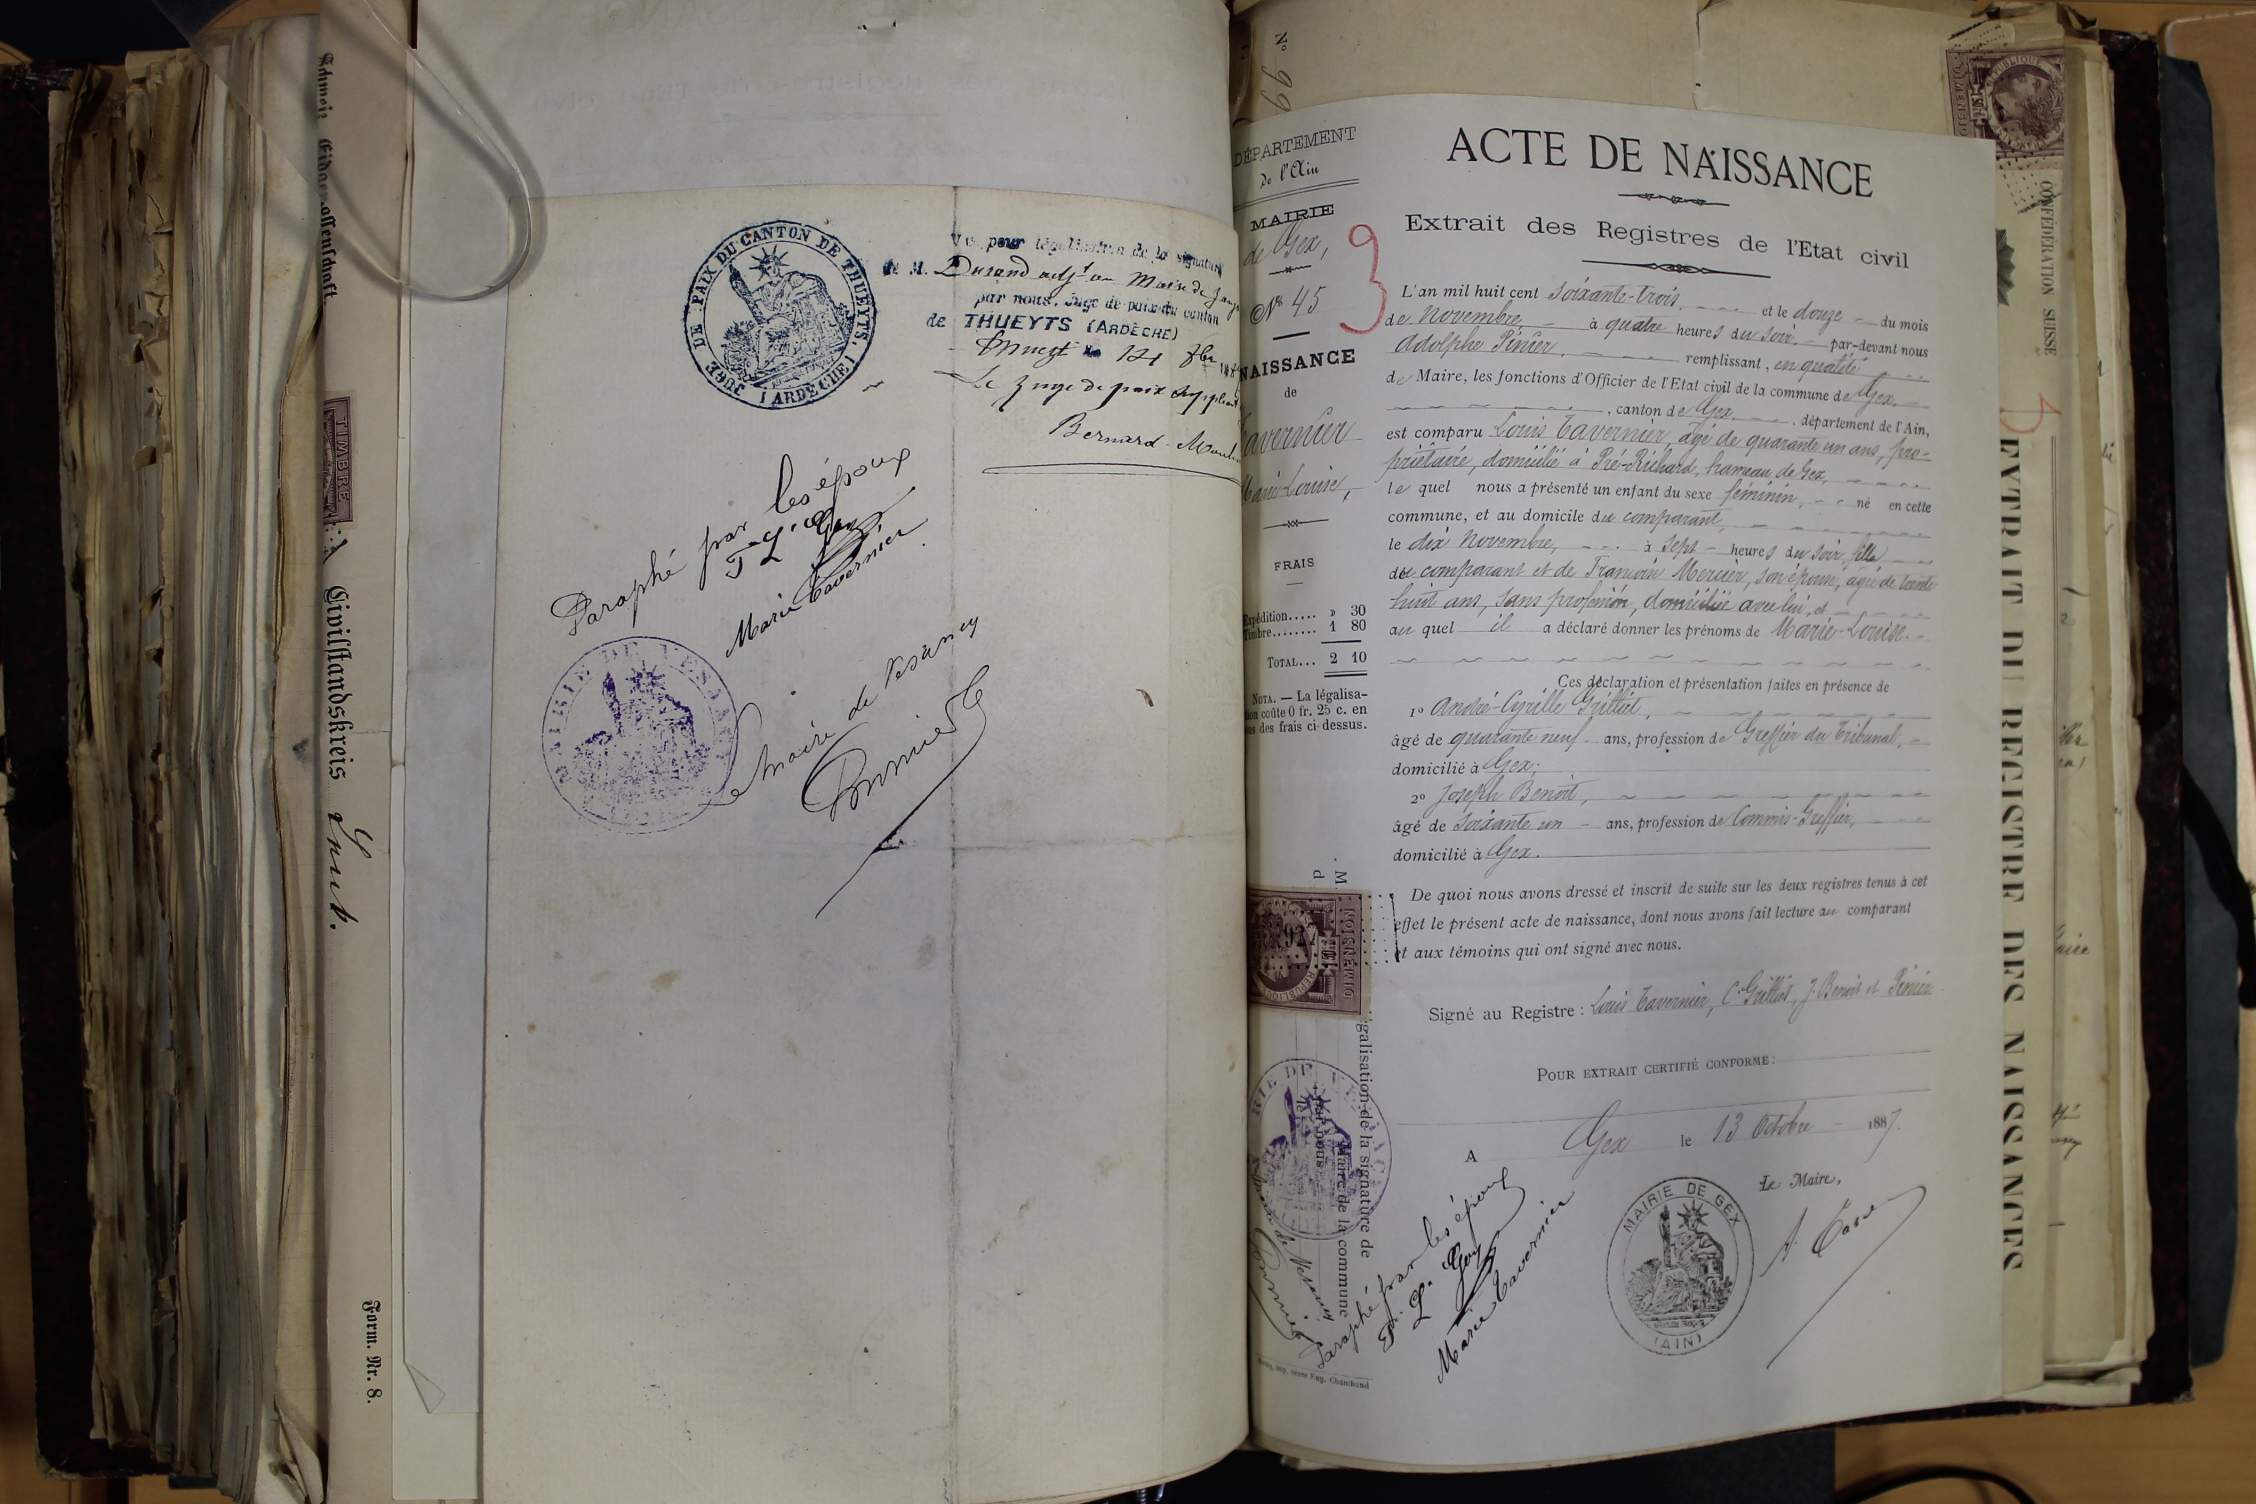 Schweiz. Eidgenossenschaft
TIMBRE
Civilstandskreis
Form. Nr. 8.
JUGE DE PAIX DU CANTON DE THUEYTS.
(ARDÈCHE)
Vu pour légalisation de la signature
de M. Durand adjt au Maire de
par nous, Juge de paix du canton
de THUEYTS (ARDÈCHE)
le 14 8bre 188
Le Juge de paix suppléant
Bernard
Paraphé par les époux
F. L. Goy
Marie Tavernier
MAIRIE DE VESANCY
Le maire de Vesancy
Nº 99
DÉPARTEMENT
de l'Ain
MAIRIE
de Gex,
Nº 45
3
NAISSANCE
de
Tavernier
Marie Louise,
FRAIS
Expédition..... » 30
Timbre........ 1 80
TOTAL... 2 10
NOTA. — La légalisa-
tion coûte 0 fr. 25 c. en
sus des frais ci-dessus.
ACTE DE NAISSANCE
Extrait des Registres de l'Etat civil
L'an mil huit cent soixante-trois. et le douze du mois
de Novembre à quatre heures du soir. par-devant nous
Adolphe Pinier, remplissant, en qualité
de Maire, les fonctions d'Officier de l'Etat civil de la commune de Gex,
, canton de Gex, département de l'Ain,
est comparu Louis Tavernier, âgé de quarante un ans, pro-
priétaire, domicilié à Pré-Richard, hameau de Gex,
le quel nous a présenté un enfant du sexe féminin, né en cette
commune, et au domicile du comparant,
le dix Novembre, à sept heures du soir, fille
du comparant et de Mercier, son épouse, âgée de trente
huit ans, sans profession, domiciliée avec lui, et
au quel il a déclaré donner les prénoms de Marie-Louise.
Ces déclaration et présentation faites en présence de
1º André-Cyrille Grilliet,
âgé de quarante neuf ans, profession de Greffier du Tribunal,
domicilié à Gex;
2º Joseph Benoit,
âgé de soixante un ans, profession de Commis-Greffier,
domicilié à Gex.
De quoi nous avons dressé et inscrit de suite sur les deux registres tenus à cet
effet le présent acte de naissance, dont nous avons fait lecture au comparant
et aux témoins qui ont signé avec nous.
Signé au Registre : Louis Tavernier, C. Grilliet, J. Benoit et Pinier
POUR EXTRAIT CERTIFIÉ CONFORME :
A Gex le 13 Octobre 1887.
Le Maire,
MAIRIE DE GEX
(AIN)
Paraphé par les époux
F. L. Goy
Marie Tavernier
DIMENSION
galisation de la signature de
Maire de la commune
par nous
CONFÉDÉRATION SUISSE
EXTRAIT DU REGISTRE DES NAISSANCES